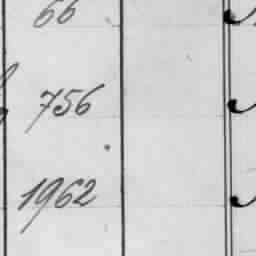 66
756
1962